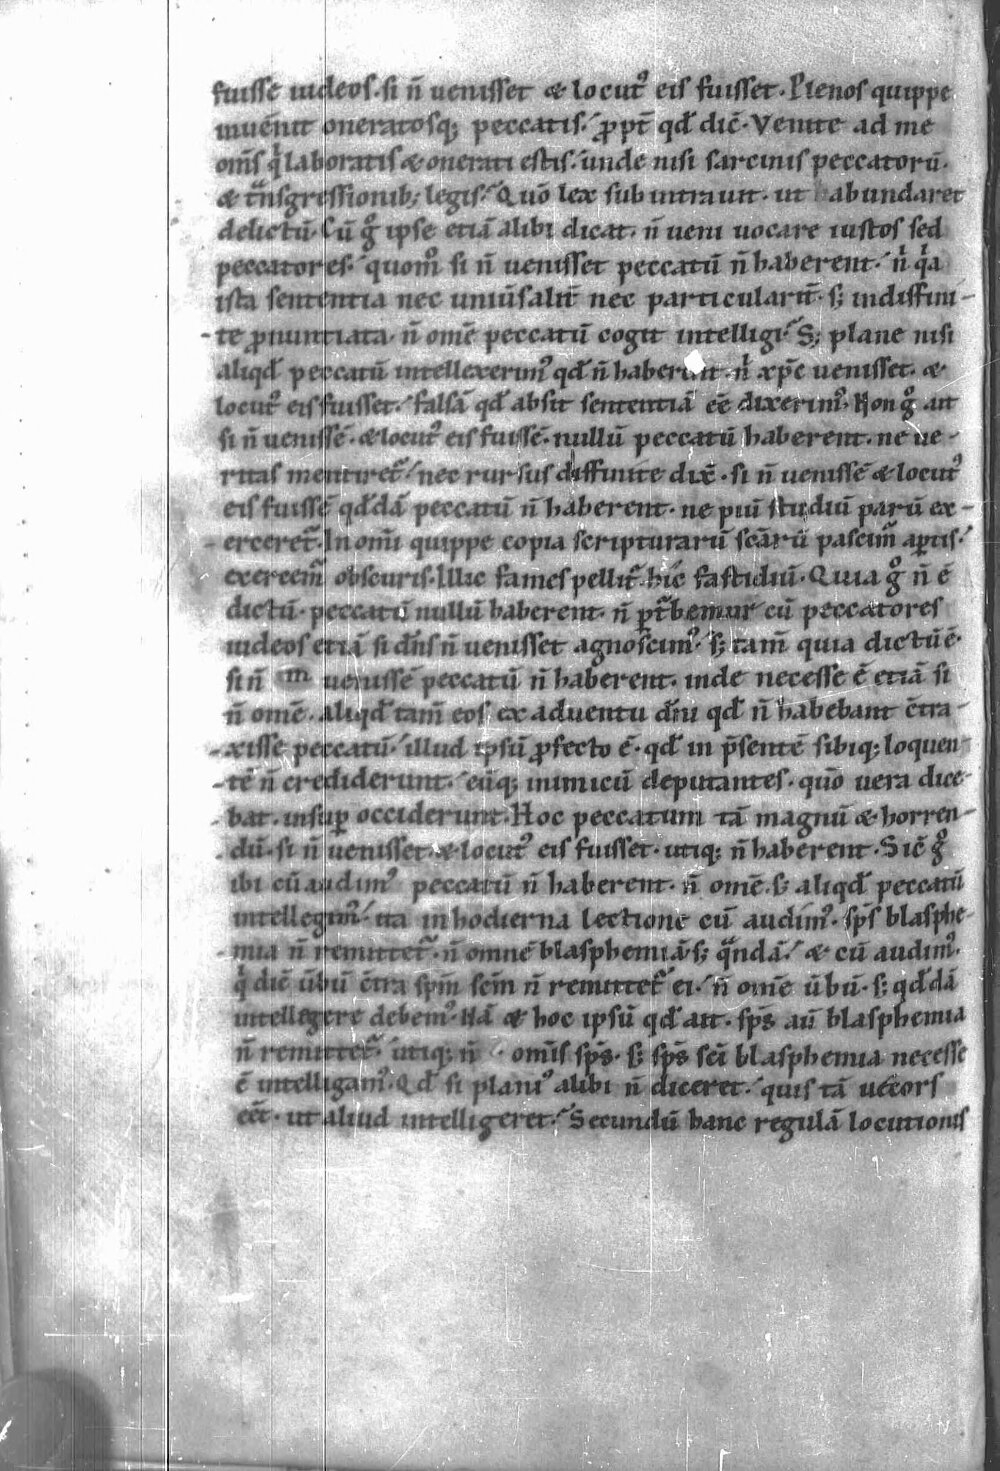 fuisse iudeos. si n̄ uenisset & locutꝰ eis fuisset. Plenos quippe
inuenit oneratosq; peccatis. ꝓpt̄ qd̄ dic̄. Venite ad me
om̄s qͥ laboratis & onerati estis. unde nisi sarcinis peccatorū.
& tͣnsgressionib; legis. Quō lex subintrauit. ut habundaret
delictū. Cū gͦ ipse etiā alibi dicat. n̄ ueni uocare iustos sed
peccatores. quom̊ si n̄ uenisset peccatū n̄ haberent. nͥ qͥa
ista sententia nec uniūsalit̄ nec particularit̄. s; indiffini-
te ꝓnuntiata. n̄ om̄e peccatū cogit intelligi. S; plane nisi
aliqd̄ peccatū intellexerimꝰ qd̄ n̄ haberent. nͥ xp̄c uenisset. &
locutꝰ eis fuisset. falsā qd̄ absit sententiā eē dixerimꝰ. Non gͦ ait
si n̄ uenissē. & locutꝰ eis fuissē. nullū peccatū haberent. ne ue-
ritas mentiret᷑. nec rursus diffinite dix̄. si n̄ uenissē & locutꝰ
eis fuissē qd̄dā peccatū n̄ haberent. ne piū studiū parū ex-
erceret᷑. In om̄i quippe copia scripturarū sc̄arū pascim᷑ aꝑtis.
exercem᷑ obscuris. Illic fames pellit᷑. hic fastidiū. Quia gͦ n̄ ē
dictū. peccatū nullū haberent. n̄ ꝑt᷑bemur cū peccatores
iudeos etiā si dn̄s n̄ uenisset agnoscimꝰ. s; tam̄ quia dictū ē.
si n̄ uenissē peccatū n̄ haberent. inde necesse ē etiā si
n̄ om̄e. aliqd̄ tam̄ eos ex aduentu dn̄i qd̄ n̄ habebant c̄tra-
xisse peccatū. illud ipsū ꝓfecto ē. qd̄ in p̄sentē sibiq; loquen-
tē n̄ crediderunt. eūq; inimicū deputantes. quō uera dice-
bat. insuꝑ occiderunt. Hoc peccatum tā magnū & horren-
dū. si n̄ uenisset. & locutꝰ eis fuisset. utiq; n̄ haberent. Sic̄ gͦ
ibi cū audimꝰ peccatū n̄ haberent. n̄ om̄e. s; aliqd̄ peccatū
intellegimꝰ. ita in hodierna lectione cū audimꝰ. sp̄s blasphe-
mia n̄ remittet᷑. n̄ omnē blasphemiā. s; qͣndā. & cū audimꝰ.
qͥ dic̄ ūbū c̄tra sp̄m sc̄m n̄ remittet᷑ ei. n̄ om̄e ūbū. s; qd̄dā
intellegere debemꝰ. Nā & hoc ipsū qd̄ ait. sp̄s aū blasphemia
n̄ remittet᷑. utiq; n̄ om̄is sp̄s. s; sp̄s sc̄i blasphemia necesse
ē intelligamꝰ. Qd̄ si planiꝰ alibi n̄ diceret. quis tā uecors
eēt. ut aliud intelligeret. Secundū hanc regulā locutionis